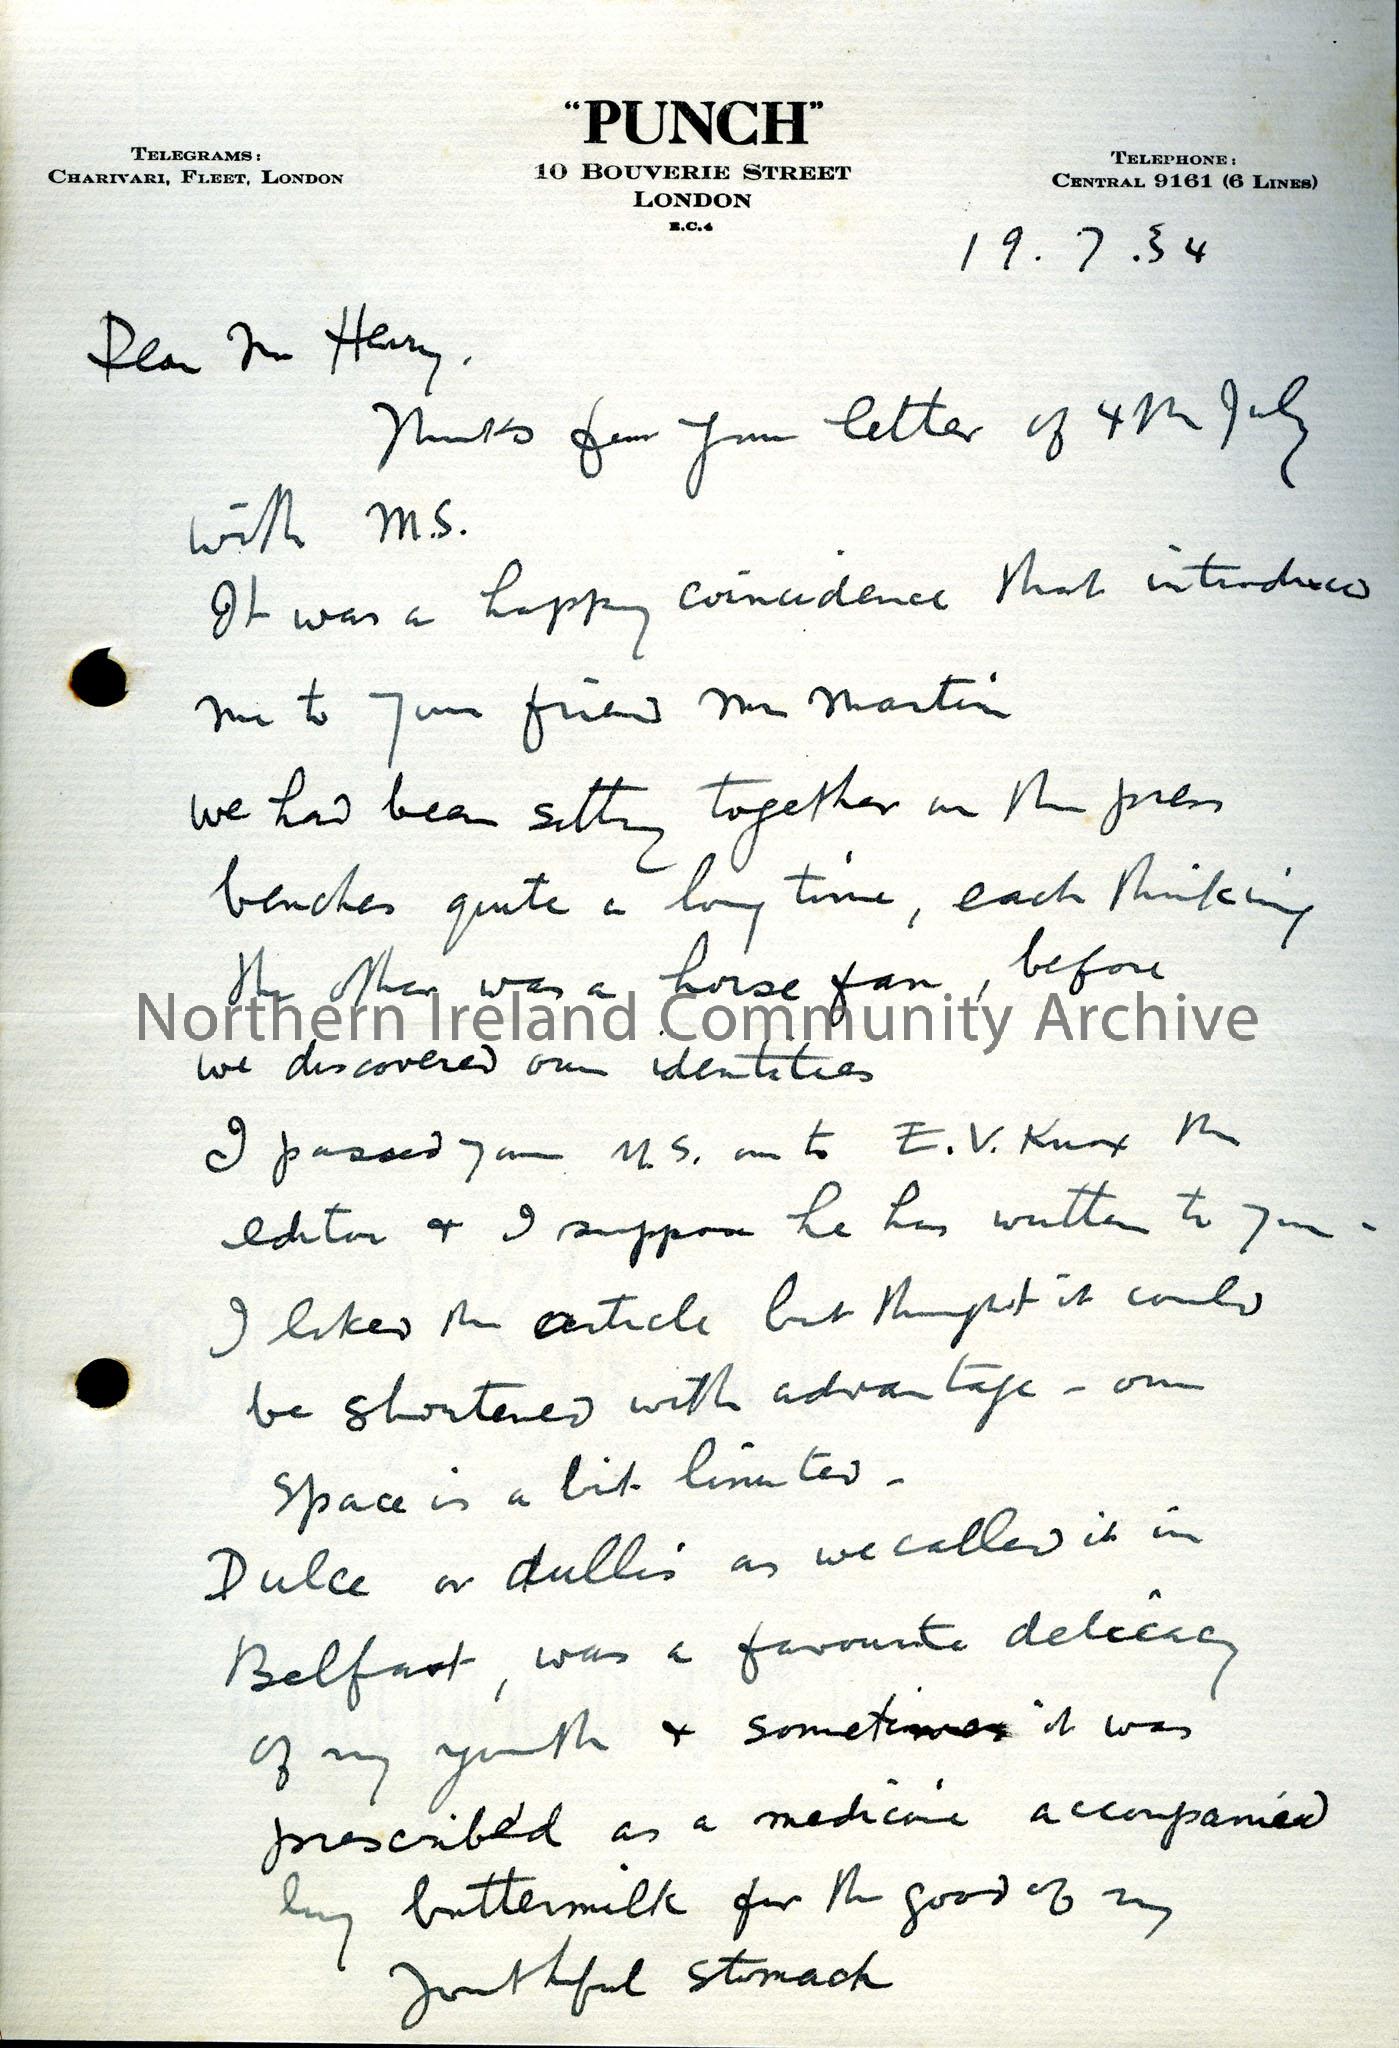 "PUNCH"
10 BOUVERIE STREET
LONDON
E.C.4
TELEGRAMS:
CHARIVARI, FLEET, LONDON
TELEPHONE:
CENTRAL 9161 (6 LINES)
19.7.34
Dear Mr Henry,
Thanks for your letter of 4th July
with M.S.
It was a happy coincidence that introduced
me to your friend Mr Martin
we had been sitting together on the press
benches quite a long time, each thinking
the other was a horse fan, before
Northern Ireland Community Archive
we discovered our identities
I passed your M.S. on to E.V. Knox the
editor & I suppose he has written to you -
I liked the article but thought it could
be shortened with advantage - our
space is a bit limited -
Dulce or dullis as we called it in
Belfast, was a favourite delicacy
of my youth & sometimes it was
prescribed as a medicine accompanied
by buttermilk for the good of my
youthful stomach